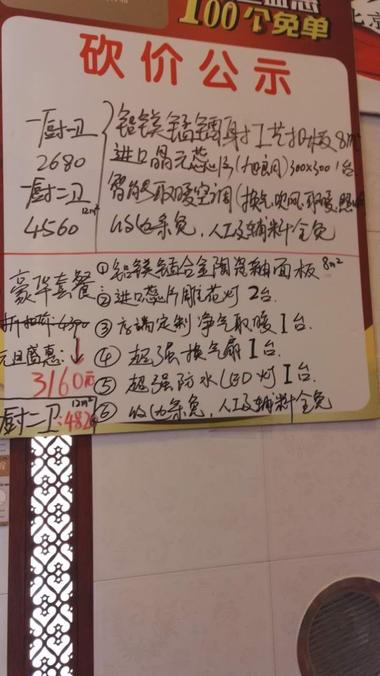 100个免单
砍价公示
一厨一卫
2680
厨二卫 12m²
4560
铝镁锰镭射工艺扣板8m²
进口晶元芯片 300×300 1台
智能取暖空调(换气吹风取暖照
收边条免,人工及辅料全免
豪华套餐
4390
元旦感惠:
3160元
厨二卫:482
12m²
①铝镁锰合金陶瓷釉面板 8m²
②进口芯片雕花灯2台.
③高端定制净气取暖1台.
④超强换气扇1台.
⑤超强防水LED灯1台.
⑥收边条免,人工及辅料全免